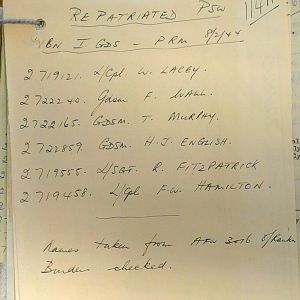 REPATRIATED PSW
BN I GDS - PRM 8/2/44
2719121. L/Cpl. W. LACEY.
2722240. Gdsm F. WALL.
2722165. GDSM. T. MURPHY.
2722859. GDSM. H.J. ENGLISH.
2719555. L/SGT. R. FITZPATRICK
2719458. L/Cpl F.W. HAMILTON.
Names taken from AFW 3016 O/Ranks
Burden checked.